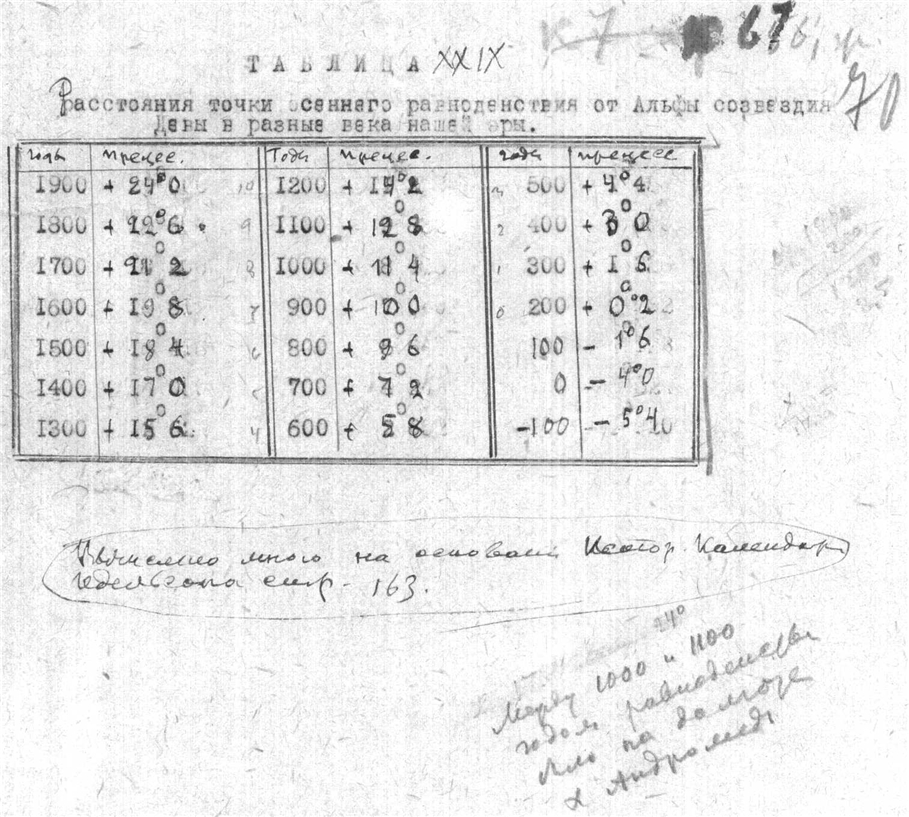 67
ТАБЛИЦА XXIX
70
Расстояния точки осеннего равноденствия от Альфы созвездия
Девы в разные века нашей эры.
годы прецес. Годы прецес. годы прецес
1900 + 24°0 10 1200 + 14°2 3 500 + 4°4
1800 + 22°6 9 1100 + 12°8 2 400 + 3°0
1700 + 21°2 8 1000 + 11°4 1 300 + 1°6
1600 + 19°8 7 900 + 10°0 0 200 + 0°2
1500 + 18°4 6 800 + 8°6 100 - 1°6
1400 + 17°0 700 + 7°2 0 - 4°0
1300 + 15°6 4 600 + 5°8 -100 - 5°4
Вычислено мною на основании Истор. Календаря
Идельсона стр. 163.
24°
Между 1000 и 1100
годом равноденствие
было на долготе
α Андромеды